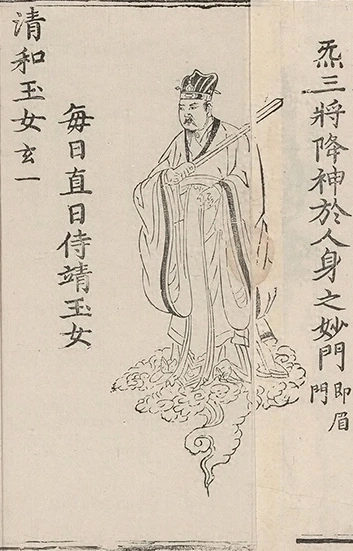 炁三將降神於人身之妙門即眉門
每日直日侍靖玉女
清和玉女玄一